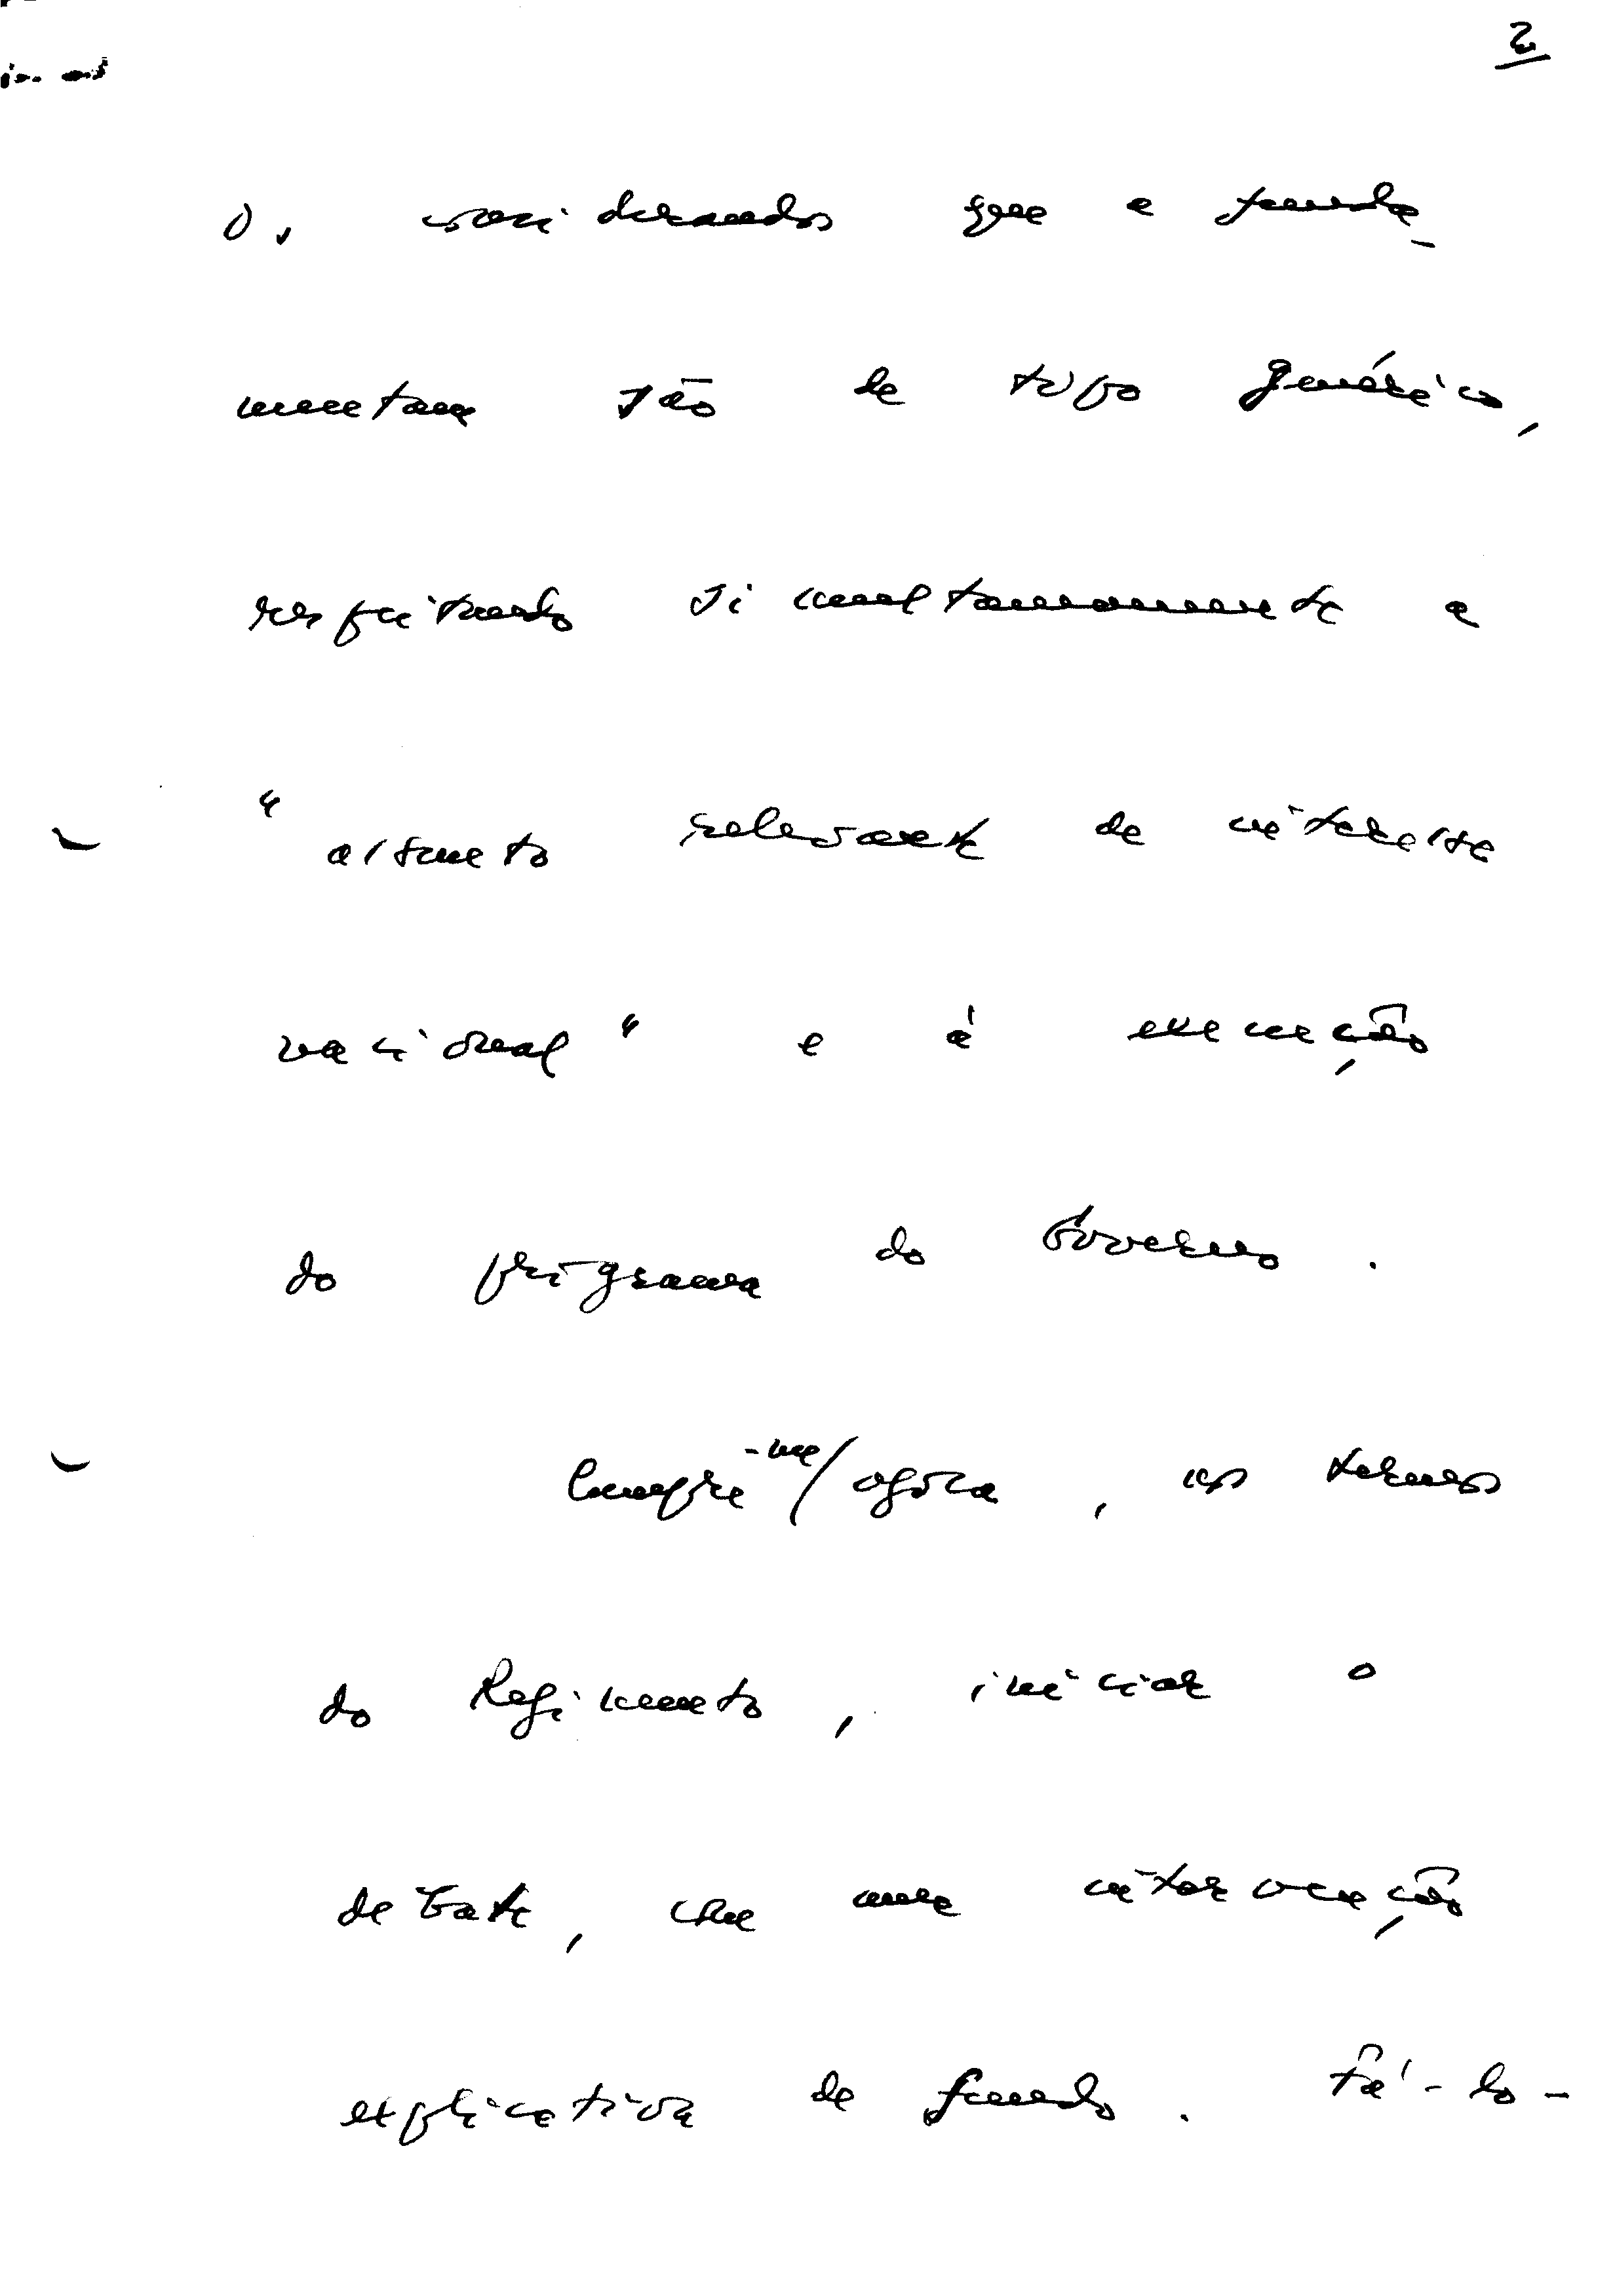 2
Os considerandos que a funda-
mentam são de tipo genérico,
respeitando simultaneamente a
"assunto relevante de interesse
nacional" e à execução
do programa do Governo.
Cumpre-me agora, nos termos
do Regimento, iniciar o
debate, com uma intervenção
explicativa de fundo. Fá-lo-